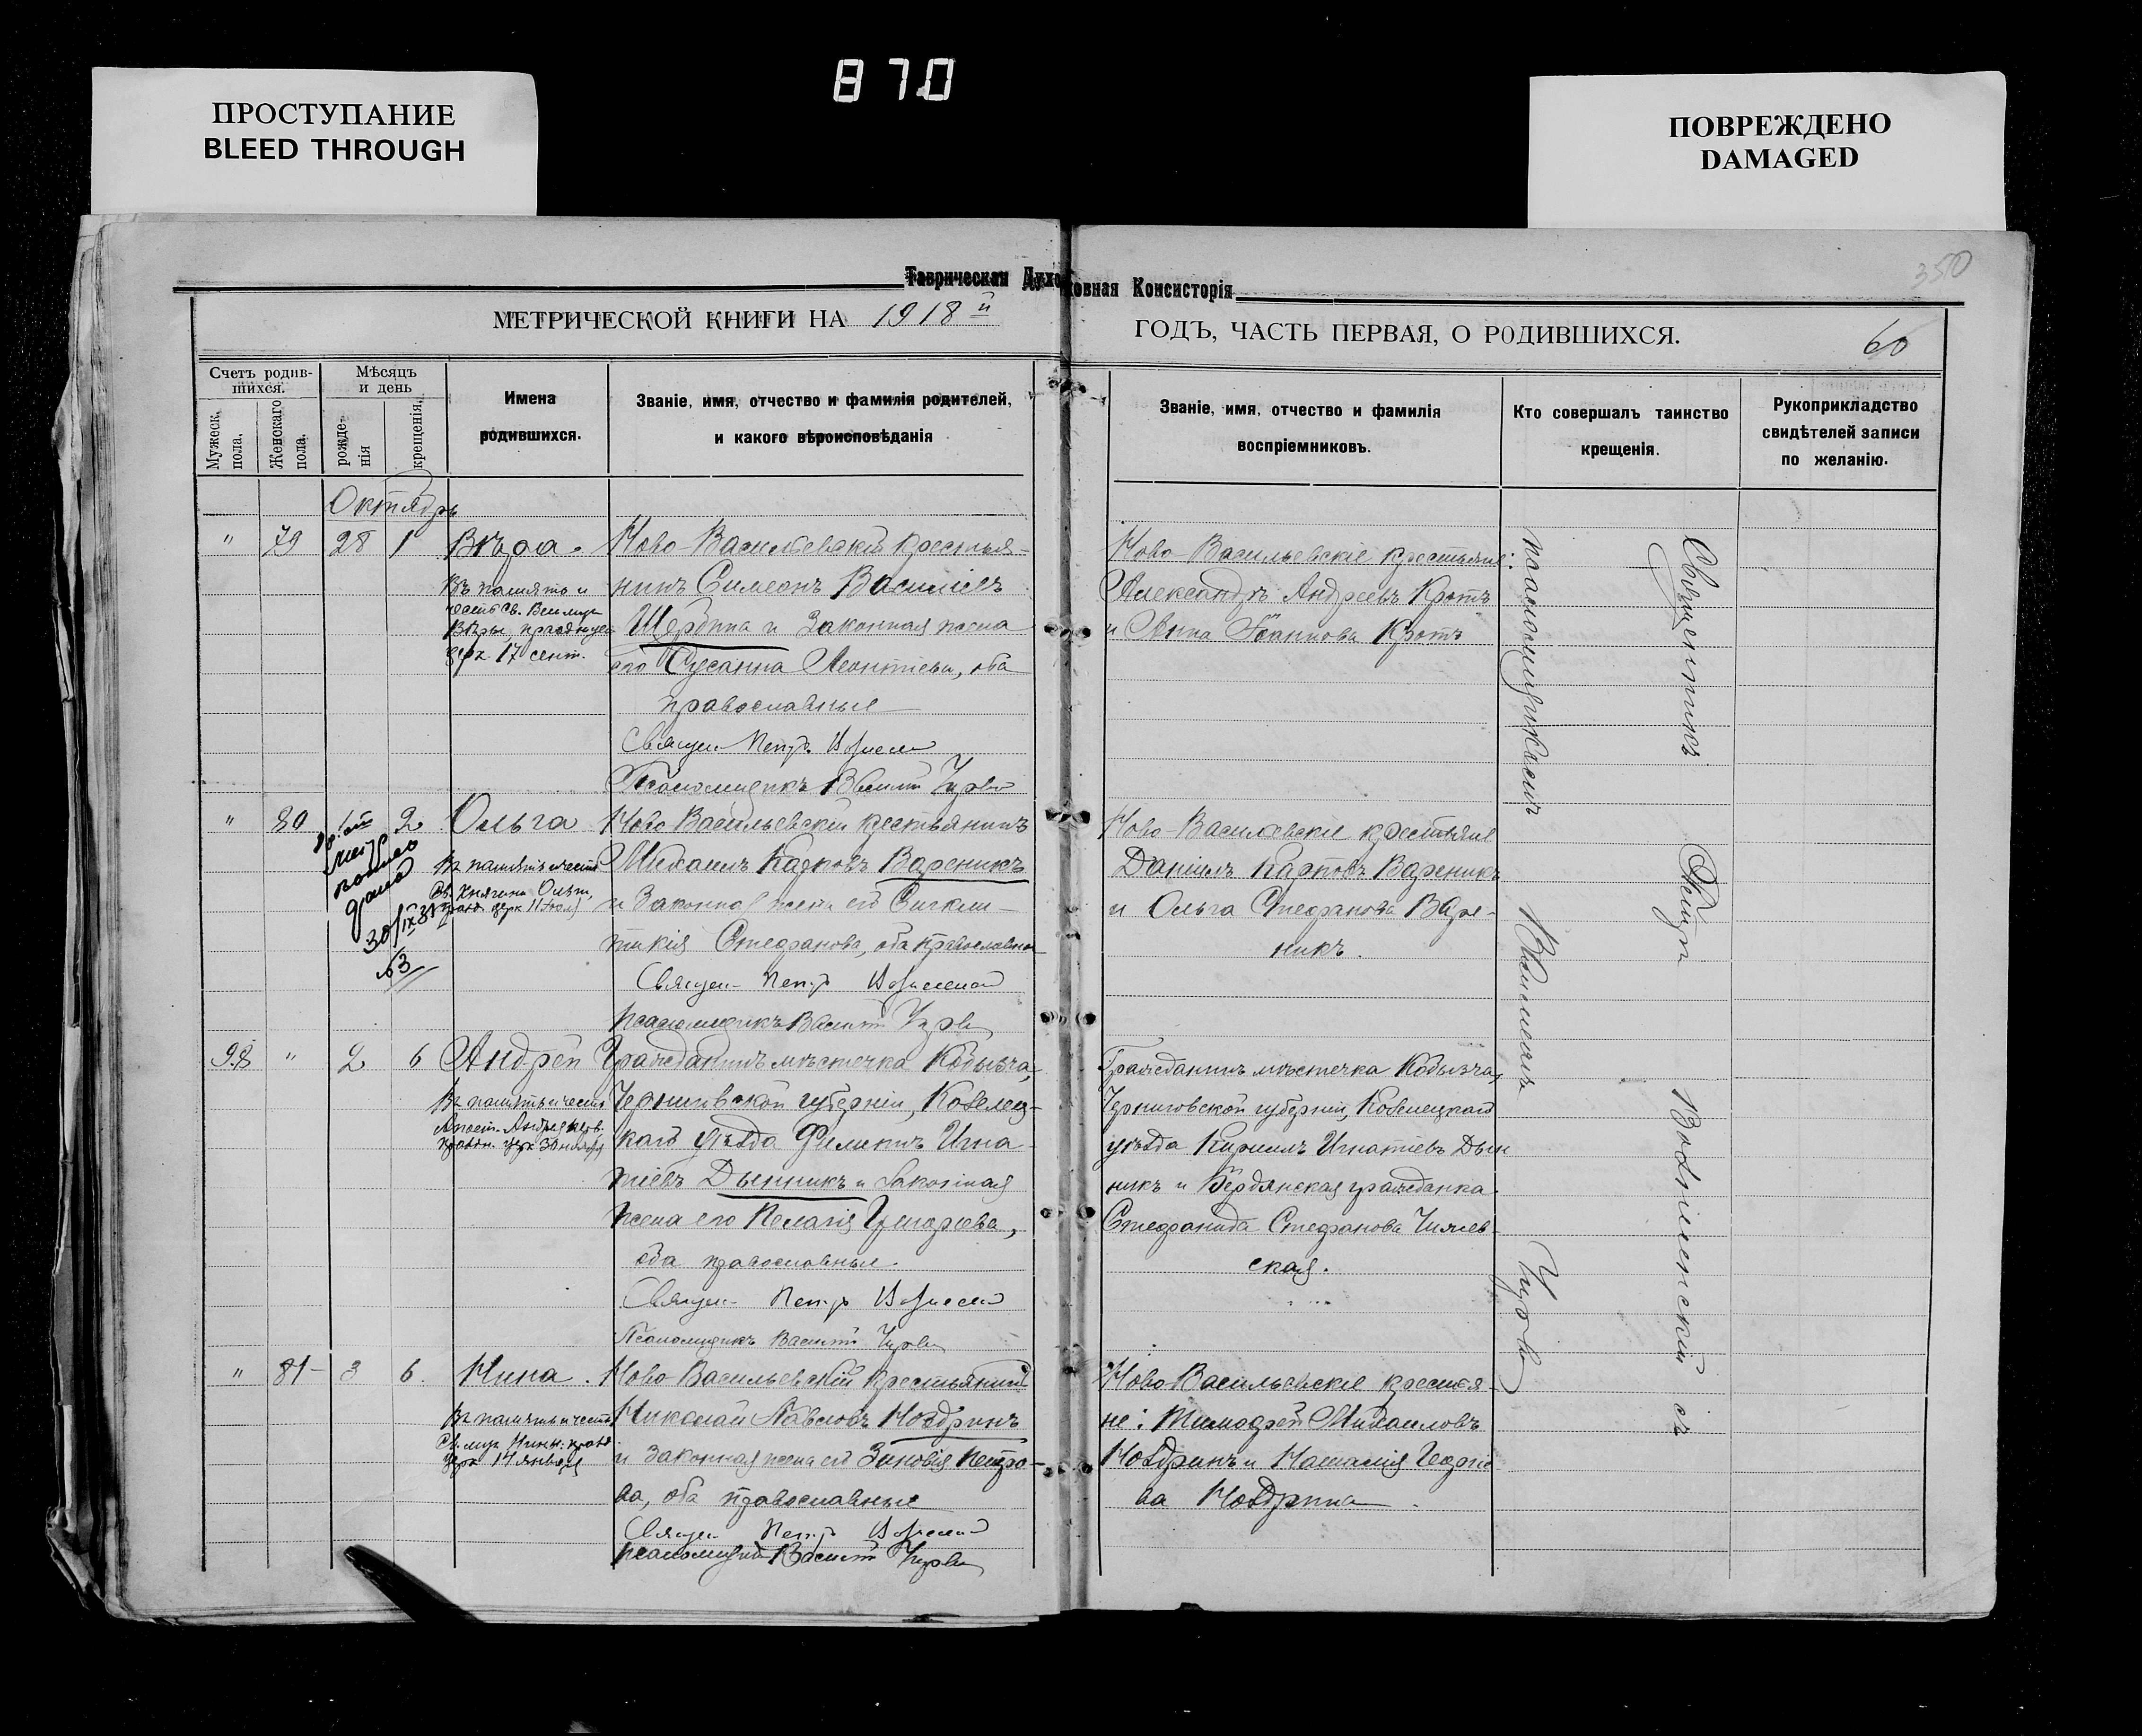 870
ПРОСТУПАНИЕ
BLEED THROUGH
ПОВРЕЖДЕНО
DAMAGED
350
Таврическая Духовная Консисторія
МЕТРИЧЕСКОЙ КНИГИ НА 1918й
ГОДЪ, ЧАСТЬ ПЕРВАЯ, О РОДИВШИХСЯ.
60
Счетъ родив-
шихся.
Мужеск.
пола.
Женскаго
пола.
Мѣсяцъ
и день
рожде-
нія
крещенія.
Имена
родившихся.
Званіе, имя, отчество и фамилія родителей,
и какого вѣроисповѣданія
Званіе, имя, отчество и фамилія
воспріемниковъ.
Кто совершалъ таинство
крещенія.
Рукоприкладство
свидѣтелей записи
по желанію.
Октябрь
" 79 28 1 Вѣра.
Въ память и
Вѣры, праздну
17 сент.
Ново-Васильевскій крестья-
нинъ Симеонъ Василіевъ
Щербина и законная жена
его Сусанна Леонтіева, оба
православные
Священ Петръ
Псаломщикъ Василій
Ново-Васильевскіе крестьяне:
Александръ Андреевъ Кротъ
и Анна Іоаннова Кротъ
" 80 2 Ольга
Въ память и честь
Св. Княгини Ольги,
30/IX 31
№3
Ново Васильевскій крестьянинъ
Михаилъ Карповъ Вареникъ
и законная жена его Синкли-
тикія Стефанова, оба православные
Священ Петръ
Псаломщикъ Василій
Ново-Васильевскіе крестьяне
Даніилъ Карповъ Вареникъ
и Ольга Стефанова Варе-
никъ.
98 " 2 6 Андрей
Въ память и честь
Апост. Андрея перв.
30 ноября
Гражданинъ мѣстечка Кобызча,
Черниговской губерніи, Козелец-
каго уѣзда Филиппъ Игна-
тіевъ Дынникъ и законная
жена его Пелагія Григорьева,
оба православные.
Священ Петръ
Псаломщикъ Василій
Гражданинъ мѣстечка Кобызча,
Черниговской губерніи, Козелецкаго
уѣзда Кириллъ Игнатіевъ Дын
никъ и Бердянская гражданка
Стефанида Стефанова
ская.
" 81 3 6. Нина.
Въ память и честь
Св. муч. Нины
14 января
Ново-Васильевскій крестьянинъ
Николай Павловъ Ноздринъ
и законная жена его Зиновія Петро-
ва, оба православные
Священ Петръ
Псаломщикъ Василій
Ново-Васильевскіе крестья-
не: Тимофей Михаиловъ
Ноздринъ и Наталія Георгіе
ва Ноздрина.
Священникъ Петръ Вознесенскій съ
псаломщикомъ Василіемъ